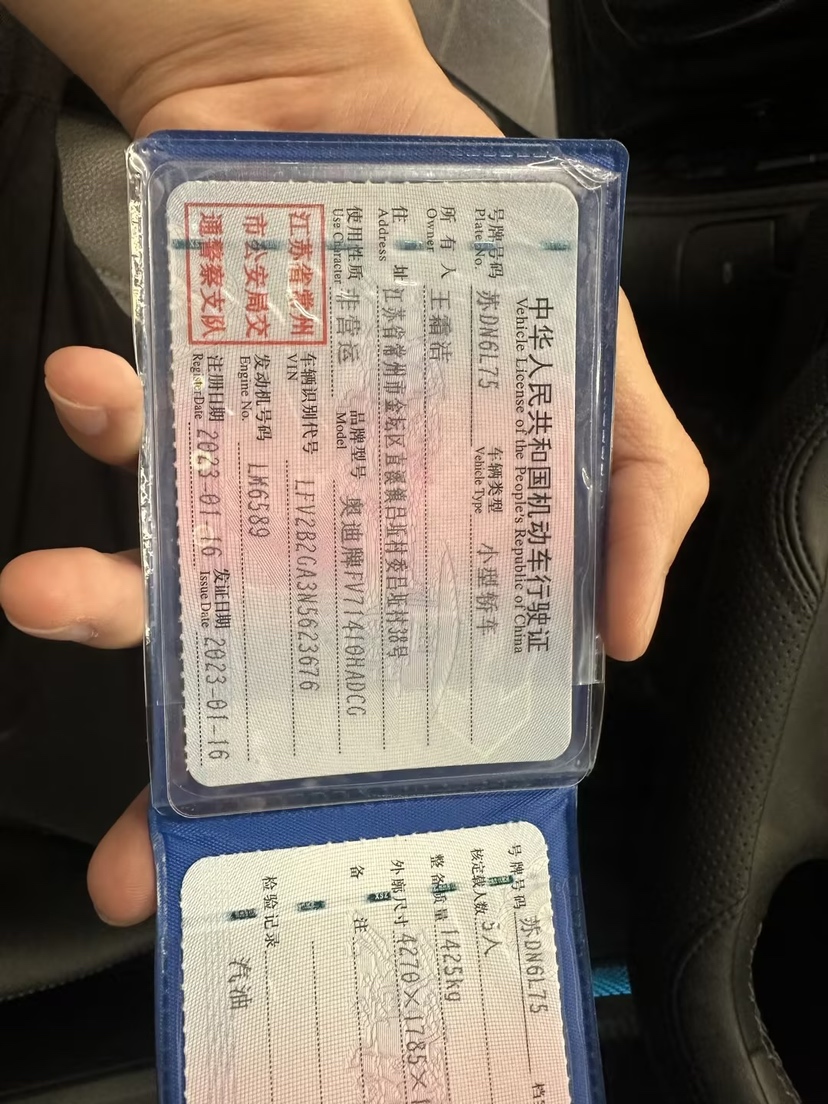 中华人民共和国机动车行驶证
Vehicle License of the People's Republic of China
号牌号码 苏DN6L75 车辆类型 小型轿车
Plate No. Vehicle Type
所有人 王霜洁
Owner
住址 江苏省常州市金坛区直溪镇吕坵村委吕坵村38号
Address
使用性质 非营运 品牌型号 奥迪牌FV71410HADCG
Use Character Model
江苏省常州
市公安局交
通警察支队
车辆识别代号 LFV2B2GA3N5623676
VIN
发动机号码 LM6589
Engine No.
注册日期 2023-01-16 发证日期 2023-01-16
Register Date Issue Date
号牌号码 苏DN6L75
核定载人数 5人
整备质量 1425kg
外廓尺寸 4270×1785×
备注
检验记录
汽油